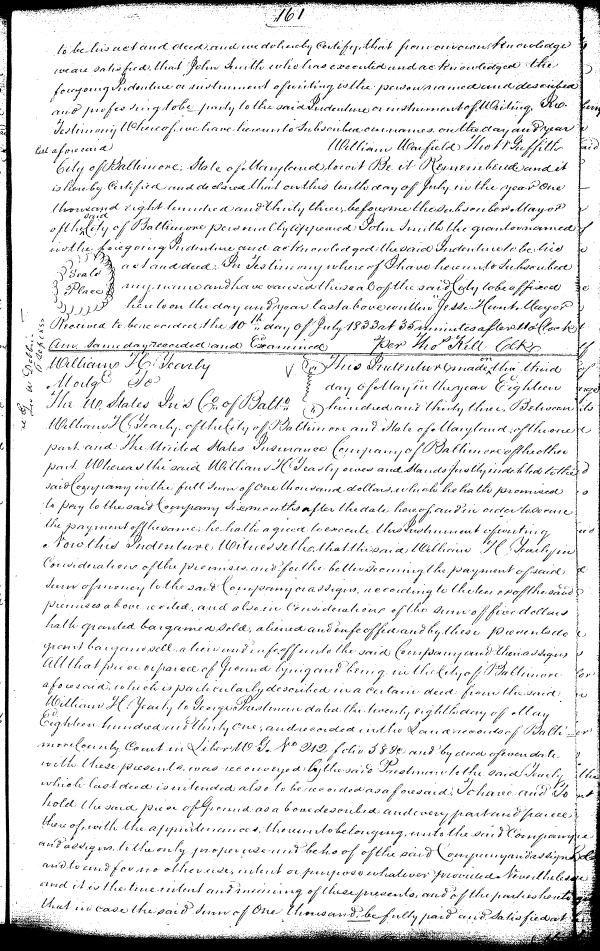 161
to be his act and deed, and we do hereby certify, that from our own knowledge
we are satisfied, that John Smith who has executed and acknowledged the
foregoing Indenture or instrument of writing is the person named and described
and professing to be party to the said Indenture or instrument of Writing. In
Testimony Whereof, we have hereunto Subscribed our names, on the day and year
last aforesaid William Warfield Thos W Griffith
City of Baltimore, State of Maryland, to wit Be it Remembered and it
is hereby Certified and declared that on this tenth day of July, in the year One
thousand eight hundred and thirty three, before me the Subscriber Mayor
of the said City of Baltimore personally appeared John Smith the grantor named
in the foregoing Indenture and acknowledged the said Indenture to be his
Seals Place
act and deed. In Testimony where of I have hereunto Subscribed
my name and have caused the seal of the said City to be affixed
hereto on the day and year last above written Jesse Hunt Mayor
Received to be recorded the 10th day of July 1833 at 35 minutes after 11 o Clock
am. same day recorded and Examined Per Thos Kell Clk
William H. Yearly
Modge To
The U. States Ins Co of Balto
This Indenture made on this third
day of May in the year Eighteen
hundred and thirty three, Between
William H. Yearly, of the City of Baltimore and State of Maryland, of the one
part and The United States Insurance Company of Baltimore of the other
part. Whereas the said William H Yearly owes and Stands justly indebted to the
said Company in the full sum of One thousand dollars, which he hath promised
to pay to the said Company six months after the date hereof and in order to secure
the payment of the same, he hath agreed to execute this Instrument of writing
Now this Indenture Witnesseth, that the said William H Yearly in
Consideration of the premises and for the better securing the payment of said
Sum of money to the said Company or assigns, according to the tenor of the said
premises above recited, and also in Consideration of the sum of five dollars
hath granted bargained sold, aliened and enfeoffed and by these presents do
grant bargain sell alien and enfeoff unto the said Company and their assigns
All that piece or parcel of Ground lying and being in the City of Baltimore
aforesaid, which is particularly described in a certain deed from the said
William H. Yearly to George Prestman dated the twenty eighth day of May
Eighteen hundred and thirty One, and recorded in the Land records of Balti-
more County Court in Liber W G. No 212 folio 58 &c and by deed of even date
with these presents, was reconveyed by the said Prestman to the said Yearly
which last deed is intended also to be recorded as aforesaid, To have and To
hold the said piece of Ground as above described and every part and parcel
thereof, with the appurtenances, thereunto belonging, unto the said Company
and assigns, to the only proper use and behoof of the said Company and assigns
and to and for no other use, intent or purpose whatever provided Nevertheless
and it is the true intent and meaning of these presents, and of the parties hereto
that in case the said sum of One thousand, be fully paid and satisfied at